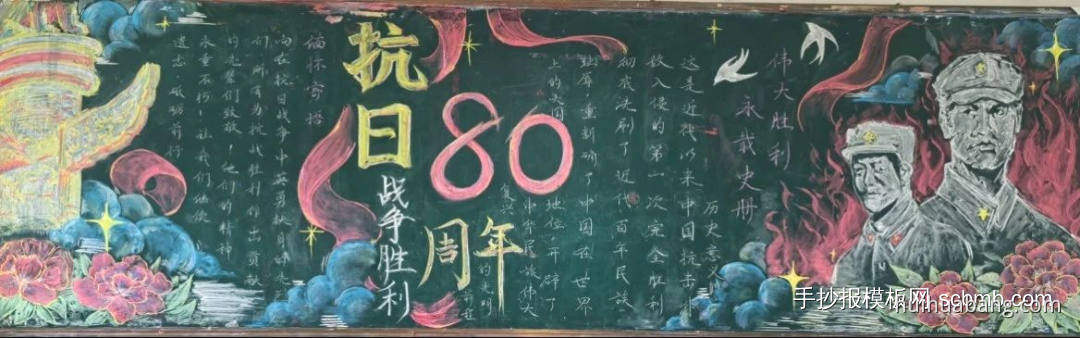 抗日
战争胜利
80
周年
伟大胜利
永载史册
历史意义
这是近代以来中国抗击外
敌入侵的第一次完全胜利
彻底洗刷了近代百年民族
耻辱,重新确了中国在世界
上的大国地位,开辟了
中华民族伟大
的光明前景
缅怀寄语
向在抗日战争中英勇献身
们,所有为抗战胜利作出贡献
的先辈们致敬!他们的精神
永垂不朽!让我们继承
遗志,砥砺前行
手抄报模板网 scbmb.com
huihuabang.com